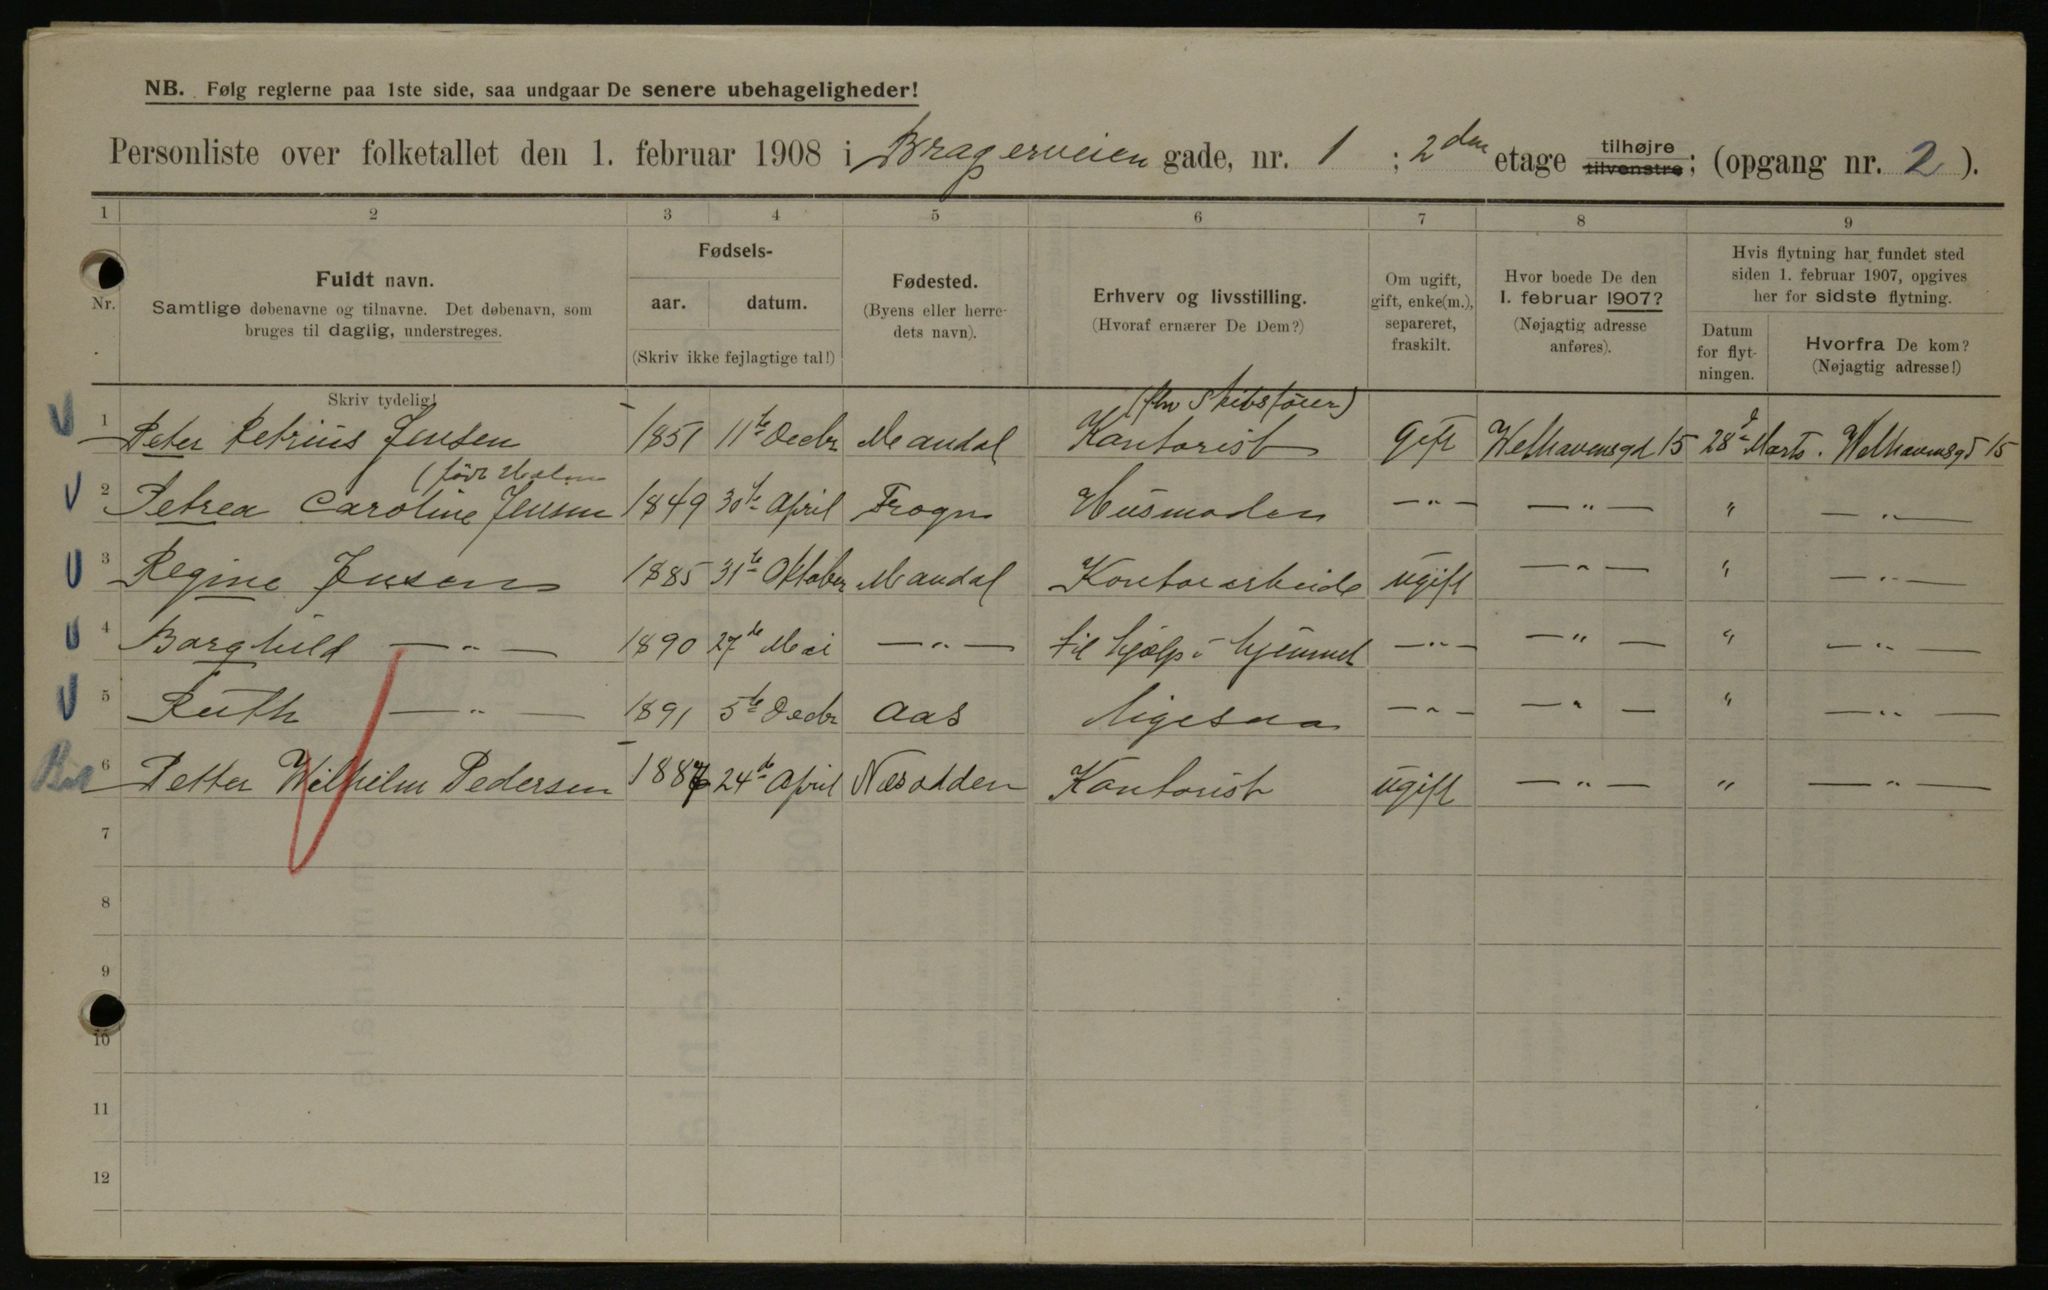 NB. Følg reglerne paa 1ste side, saa undgaar De senere ubehageligheder!
Personliste over folketallet den 1. februar 1908 i Bragerveien gade, nr. 1 ; 2den etage tilhøjre tilvenstre ; (opgang nr. 2 ).
1 2 3 4 5 6 7 8 9
Nr.
Fuldt navn.
Samtlige døbenavne og tilnavne. Det døbenavn, som
bruges til daglig, understreges.
Skriv tydelig!
Fødsels-
aar. datum.
(Skriv ikke fejlagtige tal!)
Fødested.
(Byens eller herre-
dets navn).
Erhverv og livsstilling.
(Hvoraf ernærer De Dem?)
Om ugift,
gift, enke(m.),
separeret,
fraskilt.
Hvor boede De den
1. februar 1907?
(Nøjagtig adresse
anføres).
Hvis flytning har fundet sted
siden 1. februar 1907, opgives
her for sidste flytning.
Datum
for flyt-
ningen.
Hvorfra De kom?
(Nøjagtig adresse!)
(fhv Skibsfører)
1 Peter Petrius Jensen 1851 11te Decbr Mandal Kontorist gift Welhavensgd 15 28de Marts. Welhavensgd 15
(født Holm
2 Petrea Caroline Jensen 1849 30te April Frogn Husmoder —"— —"— " —"—
3 Regine Jensen 1885 31te Oktober Mandal Kontorarbeide ugift —"— " —"—
4 Borghild —"— 1890 27de Mai —"— til hjælp i hjemmet —"— —"— " —"—
5 Ruth —"— 1891 5te Decbr Aas Ligesaa —"— —"— " —"—
6 Petter Wilhelm Pedersen 1887 24de April Næsodden Kontorist ugift —"— " —"—
7
8
9
10
11
12